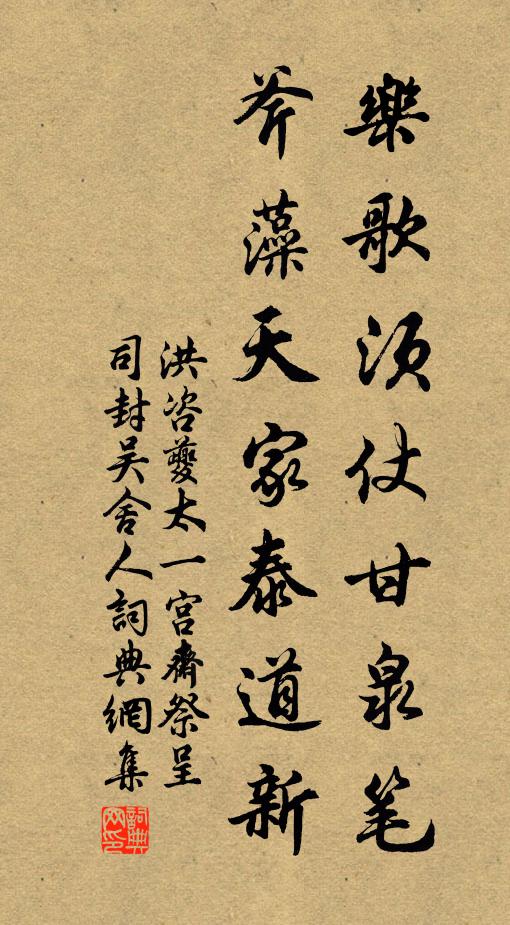 樂歌須仗甘泉笔
斧藻天家泰道新
洪咨夔太一宮齋祭呈
司封吴舍人詞典網集
詞典
网印